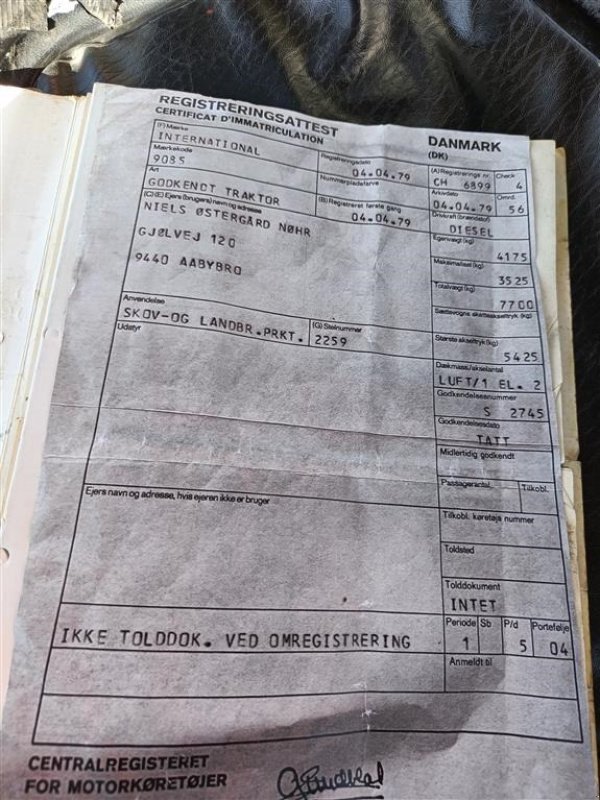 REGISTRERINGSATTEST
CERTIFICAT D'IMMATRICULATION
DANMARK
(DK)
(F) Mærke
INTERNATIONAL
Registreringsdato
04.04.79
(A) Registrerings nr. Check
CH 6899 4
Mærkekode
9085
Nummerpladefarve
Arkivdato Omrd.
04.04.79 56
Art
GODKENDT TRAKTOR
(B) Registreret første gang
04.04.79
Drivkraft (brændstof)
DIESEL
(C) (E) Ejers (brugers) navn og adresse
NIELS ØSTERGÅRD NØHR
GJØLVEJ 120
9440 AABYBRO
Egenvægt (kg)
4175
Maksimallast (kg)
3525
Totalvægt (kg)
7700
Sættevogns skatteakseltryk (kg)
Anvendelse
SKOV-OG LANDBR.PRKT.
(G) Stelnummer
2259
Største akseltryk (kg)
5425
Udstyr
Dækmass/akselantal
LUFT/1 EL. 2
Godkendelsesnummer
S 2745
Godkendelsesdato
TATT
Midlertidig godkendt
Passagerantal Tilkobl.
Ejers navn og adresse, hvis ejeren ikke er bruger
Tilkobl. køretøjs nummer
Toldsted
Tolddokument
INTET
IKKE TOLDDOK. VED OMREGISTRERING
Periode Sb P/d Portefølje
1 5 04
Anmeldt til
CENTRALREGISTERET
FOR MOTORKØRETØJER